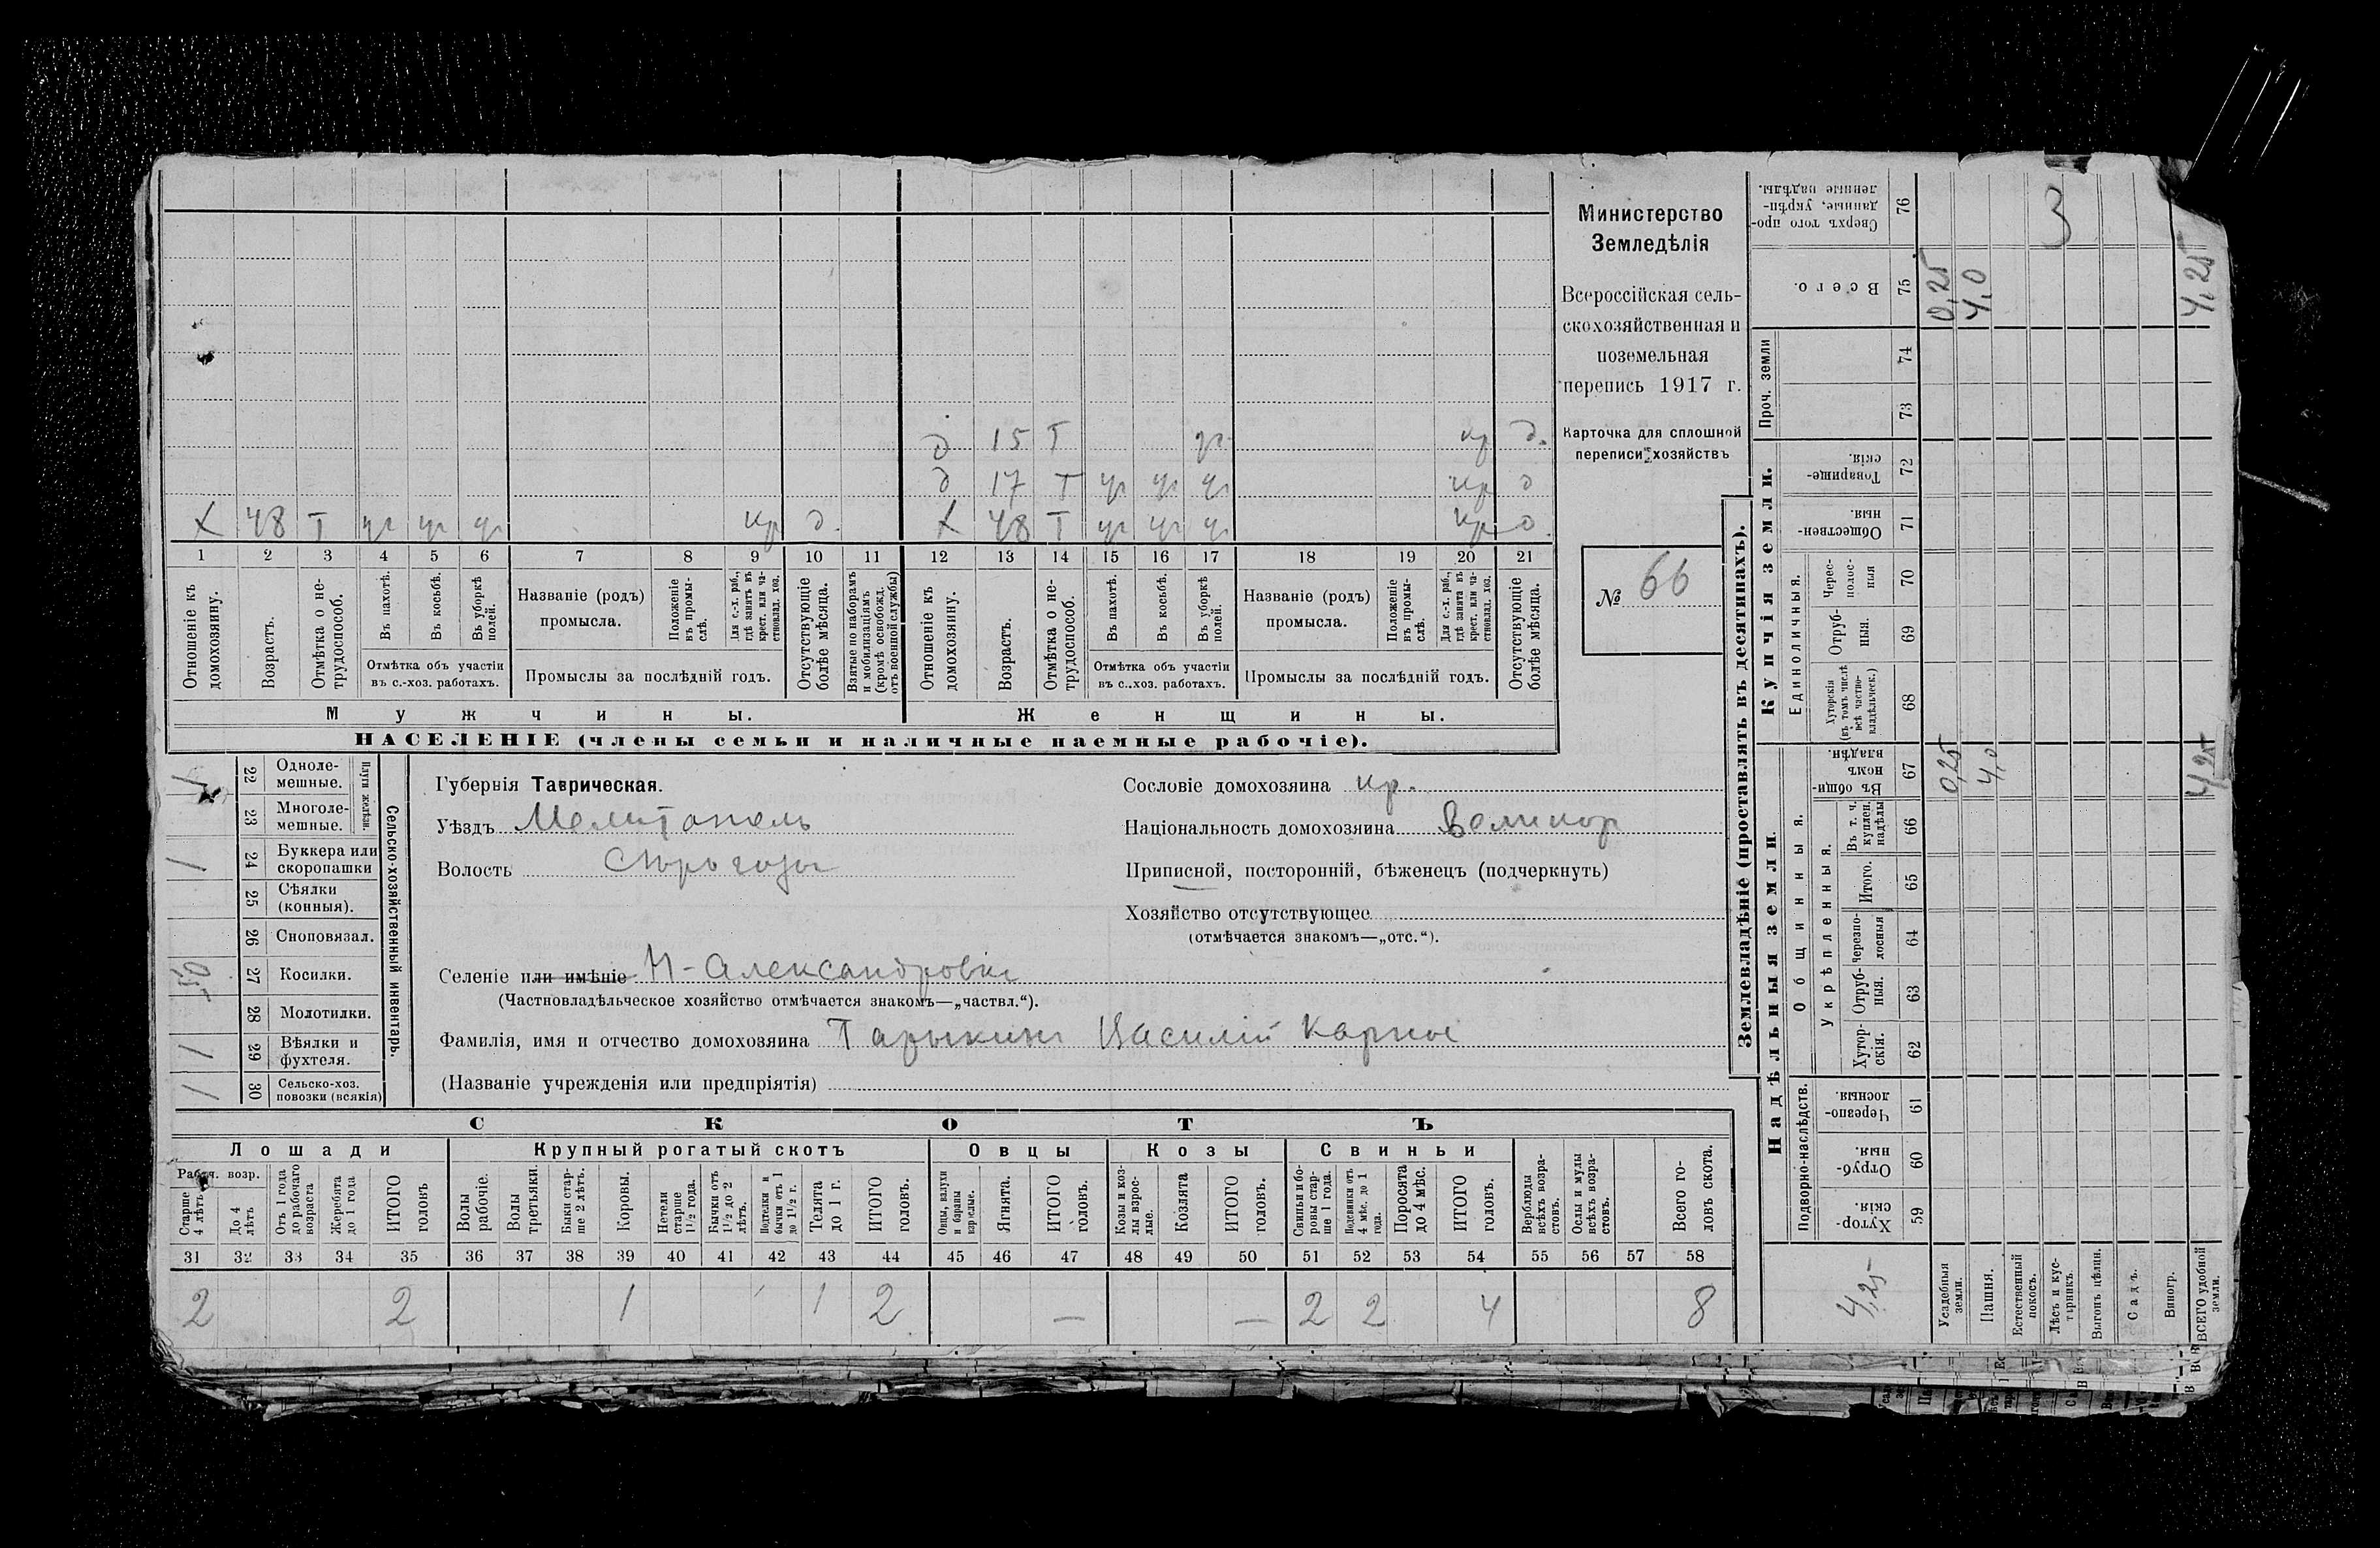 Министерство
Земледѣлія
Всероссійская сель-
скохозяйственная и
поземельная
перепись 1917 г.
Карточка для сплошной
переписи хозяйствъ
№ 66
д 15 Т ур кр д.
д 17 Т ур ур ур кр д
х 48 Т ур ур ур кр д. х 48 Т ур ур ур кр д
1 2 3 4 5 6 7 8 9 10 11 12 13 14 15 16 17 18 19 20 21
Отношеніе къ домохозяину.
Возрастъ.
Отмѣтка о не-трудоспособ.
Въ пахотѣ.
Въ косьбѣ.
Въ уборкѣ полей.
Отмѣтка объ участіи
въ с.-хоз. работахъ.
Названіе (родъ)
промысла.
Положеніе въ промы-слѣ.
Для с.-х. раб., гдѣ занятъ въ крест. или ча-стновлад. хоз.
Промыслы за послѣдній годъ.
Отсутствующіе болѣе мѣсяца.
Взятые по наборамъ и мобилизаціямъ (кромѣ освобожд. отъ военной службы)
Отношеніе къ домохозяину.
Возрастъ.
Отмѣтка о не-трудоспособ.
Въ пахотѣ.
Въ косьбѣ.
Въ уборкѣ полей.
Отмѣтка объ участіи
въ с.-хоз. работахъ.
Названіе (родъ)
промысла.
Положеніе въ промы-слѣ.
Для с.-х. раб., гдѣ занята въ крест. или ча-стновлад. хоз.
Промыслы за послѣдній годъ.
Отсутствующіе болѣе мѣсяца.
Мужчины.
Женщины.
НАСЕЛЕНІЕ (члены семьи и наличные наемные рабочіе).
Сельско-хозяйственный инвентарь.
Плуги желѣзн.
1 22 Однолемешные.
23 Многолемешные.
1 24 Буккера или скоропашки
25 Сѣялки (конныя).
26 Сноповязал.
0,5 27 Косилки.
28 Молотилки.
1 29 Вѣялки и фухтеля.
1 30 Сельско-хоз. повозки (всякія)
Губернія Таврическая.
Уѣздъ Мелитополь
Волость Сѣрогозы
Селеніе или имѣніе Н-Александровка
(Частновладѣльческое хозяйство отмѣчается знакомъ—„частвл.“).
Фамилія, имя и отчество домохозяина Тарыкин Василій Карпов
(Названіе учрежденія или предпріятія)
Сословіе домохозяина кр.
Національность домохозяина Великор
Приписной, посторонній, бѣженецъ (подчеркнуть)
Хозяйство отсутствующее
(отмѣчается знакомъ—„отс.“).
СКОТЪ
Лошади
Крупный рогатый скотъ
Овцы
Козы
Свиньи
Рабоч. возр.
Старше 4 лѣтъ
До 4 лѣтъ
Отъ 1 года до рабочаго возраста
Жеребята до 1 года
ИТОГО головъ
Волы рабочіе.
Волы третьяки.
Быки стар-ше 2 лѣтъ.
Коровы.
Нетели старше 1½ года.
Бычки отъ 1½ до 2 лѣтъ.
Подтелки и бычки отъ 1 до 1½ г.
Телята до 1 г.
ИТОГО головъ.
Овцы, валухи и бараны взрослые.
Ягнята.
ИТОГО головъ.
Козы и коз-лы взрос-лые.
Козлята
ИТОГО головъ.
Свиньи и бо-ровы стар-ше 1 года.
Подсвинки отъ 4 мѣс. до 1 года.
Поросята до 4 мѣс.
ИТОГО головъ.
Верблюды всѣхъ возра-стовъ.
Ослы и мулы всѣхъ возра-стовъ.
Всего го-ловъ скота.
31 32 33 34 35 36 37 38 39 40 41 42 43 44 45 46 47 48 49 50 51 52 53 54 55 56 57 58
2 2 1 1 2 — — 2 2 4 8
Землевладѣніе (проставлять въ десятинахъ).
Купчія земли.
Надѣльныя земли
Проч. земли
Единоличныя.
Общинныя.
Укрѣпленныя.
Подворно-наслѣдств.
Сверхъ того про-данные, укрѣп-ленные надѣлы. 76 3
Всего. 75 0,25 4,0 4,25
74
73
Товарище-скія. 72
Обществен-ныя. 71
Черес-полос-ныя 70
Отруб-ныя. 69
Хуторскія (въ томъ числѣ всѣ частно-владѣльческ.) 68
Въ общин-номъ владѣн. 67 0,25 4,0 4,25
Въ т. ч. куплен. надѣлы 66
Итого. 65
Черезпо-лосныя 64
Отруб-ныя. 63
Хутор-скія. 62
Черезпо-лосныя. 61
Отруб-ныя. 60
Хутор-скія. 59
4,25
Усадебныя земли.
Пашня.
Естественный покосъ.
Лѣсъ и кус-тарникъ.
Выгонъ цѣлин.
Садъ.
Виногр.
ВСЕГО удобной земли.